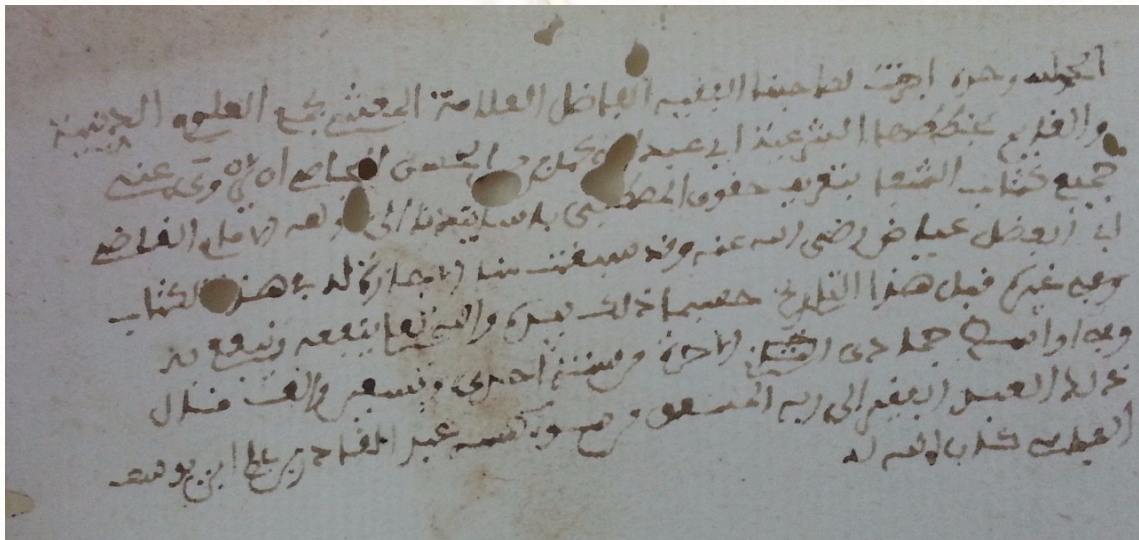 الحمد لله وحده اجزت لصاحبنا الفقيه الفاضل العلامة المعتني بجمع العلوم الدينية
والقديم الشرعية ابي عبد الله محمد بن الحسني ان يروي عني
جميع كتاب الشفا بتعريف حقوق المصطفى باسانيدنا الى مؤلفه الامام القاضي
ابي الفضل عياض رضي الله عنه وقد سبقت منا الاجازة له في هذا الكتاب
وفي غيره قبل هذا التاريخ حسبما ذلك بيده والله تعالى ينفعه وينفع به
وفي اواسط جمادى الاخرة من سنة احدى وتسعين والف قال
ذلك العبد الفقير الى ربه عبد القادر بن علي ابن يوسف
الفاسي كان الله له